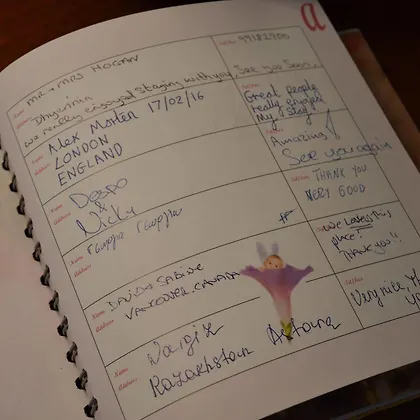 a
Name MR + MRS HOGAN
99182900
Address
we really enjoyed staying with you.
See you Soon.
Name Alex Morten 17/02/16
Address LONDON
ENGLAND
Great people
really enjoyed
My Stay!
Name Despo
&
Address Nicky
Amazing!
See you again
Name
Address
THANK YOU
VERY GOOD
Name DAVID SABINE
Address VANCOUVER, CANADA
we loved this
place!
Thank you!!
Name
Address Kazakhstan Astana
Very nice,